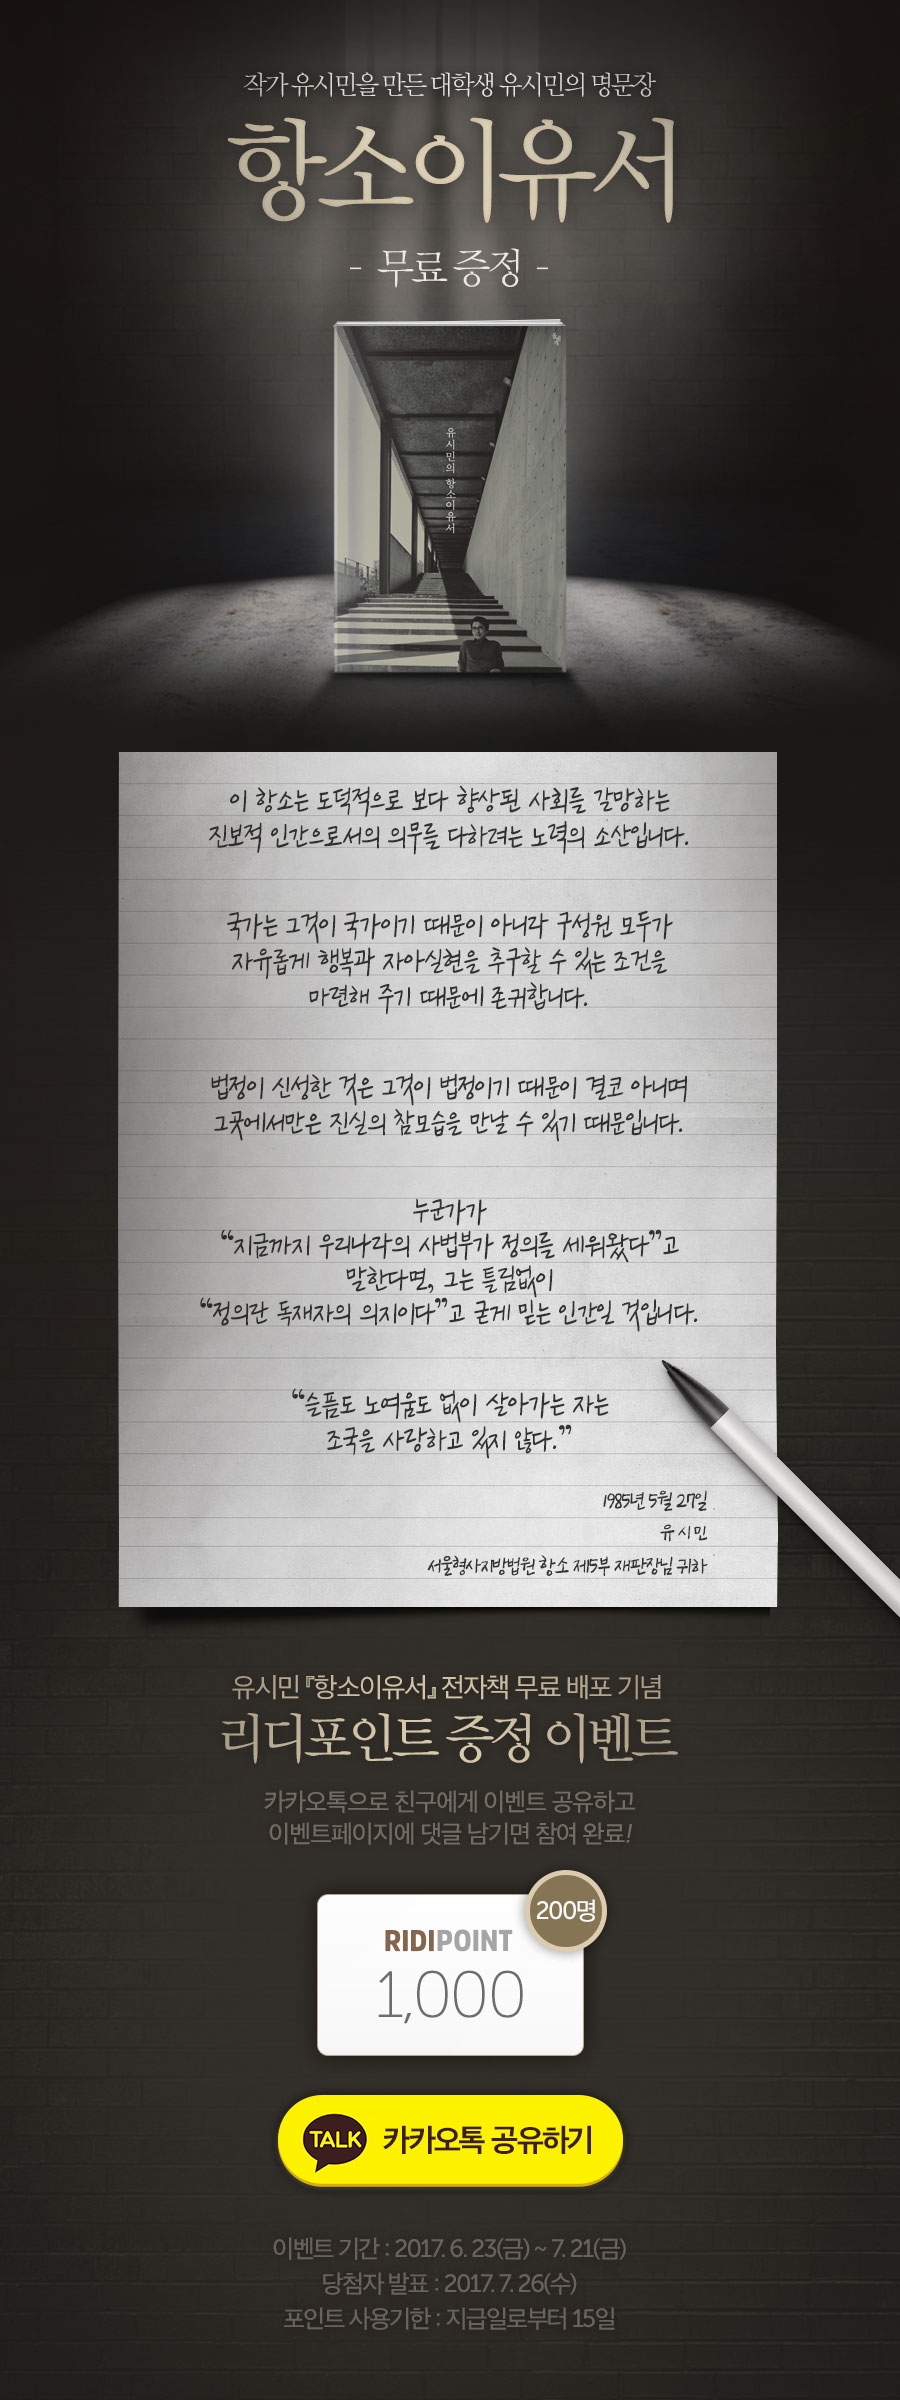 작가 유시민을 만든 대학생 유시민의 명문장
항소이유서
- 무료 증정 -
유시민의 항소이유서
이 항소는 도덕적으로 보다 향상된 사회를 갈망하는
진보적 인간으로서의 의무를 다하려는 노력의 소산입니다.
국가는 그것이 국가이기 때문이 아니라 구성원 모두가
자유롭게 행복과 자아실현을 추구할 수 있는 조건을
마련해 주기 때문에 존귀합니다.
법정이 신성한 것은 그것이 법정이기 때문이 결코 아니며
그곳에서만은 진실의 참모습을 만날 수 있기 때문입니다.
누군가가
“지금까지 우리나라의 사법부가 정의를 세워왔다”고
말한다면, 그는 틀림없이
“정의란 독재자의 의지이다”고 굳게 믿는 인간일 것입니다.
“슬픔도 노여움도 없이 살아가는 자는
조국을 사랑하고 있지 않다.”
1985년 5월 27일
유시민
서울형사지방법원 항소 제5부 재판장님 귀하
유시민 『항소이유서』 전자책 무료 배포 기념
리디포인트 증정 이벤트
카카오톡으로 친구에게 이벤트 공유하고
이벤트페이지에 댓글 남기면 참여 완료!
200명
RIDIPOINT
1,000
TALK 카카오톡 공유하기
이벤트 기간 : 2017. 6. 23(금) ~ 7. 21(금)
당첨자 발표 : 2017. 7. 26(수)
포인트 사용기한 : 지급일로부터 15일